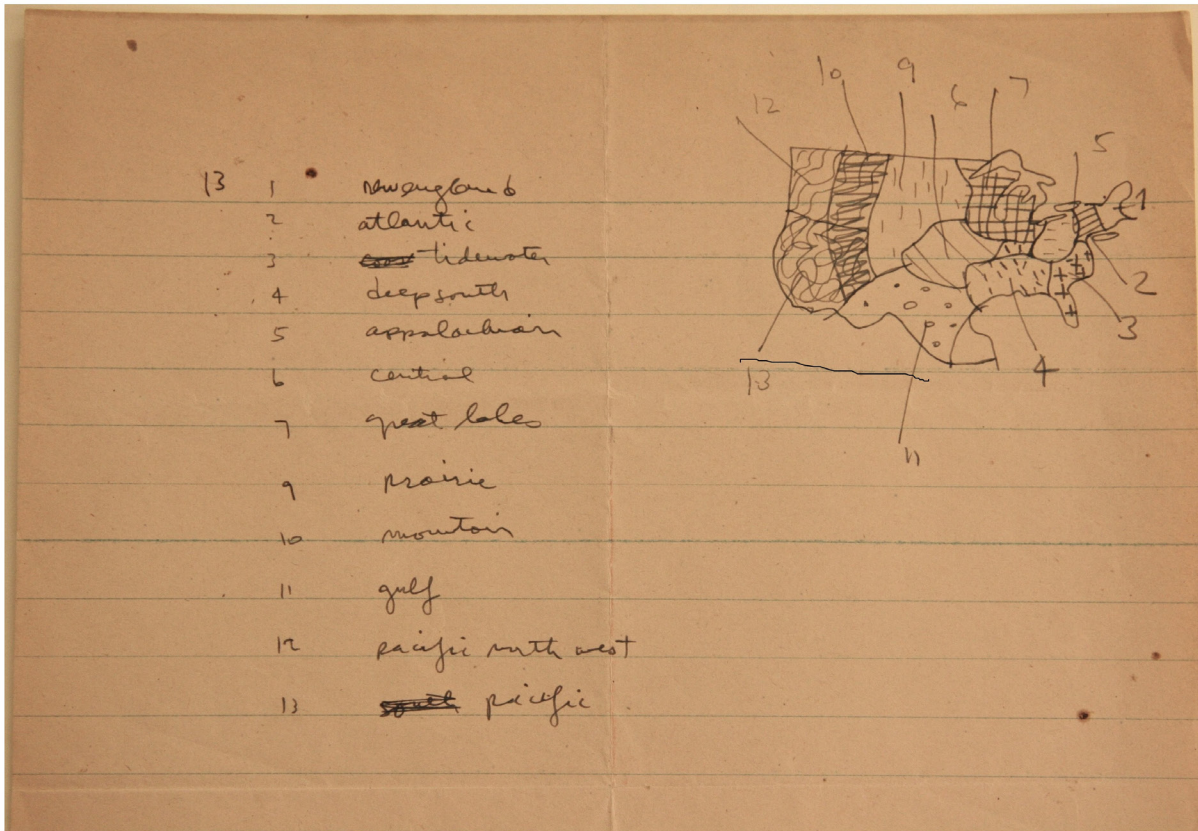 13 1 new england
2 atlantic
3 tidewater
4 deep south
5 appalachian
6 central
7 great lakes
9 prairie
10 mountain
11 gulf
12 pacific north west
13 south pacific
12 10 9 6 7
5
1
2
3
4
13
11